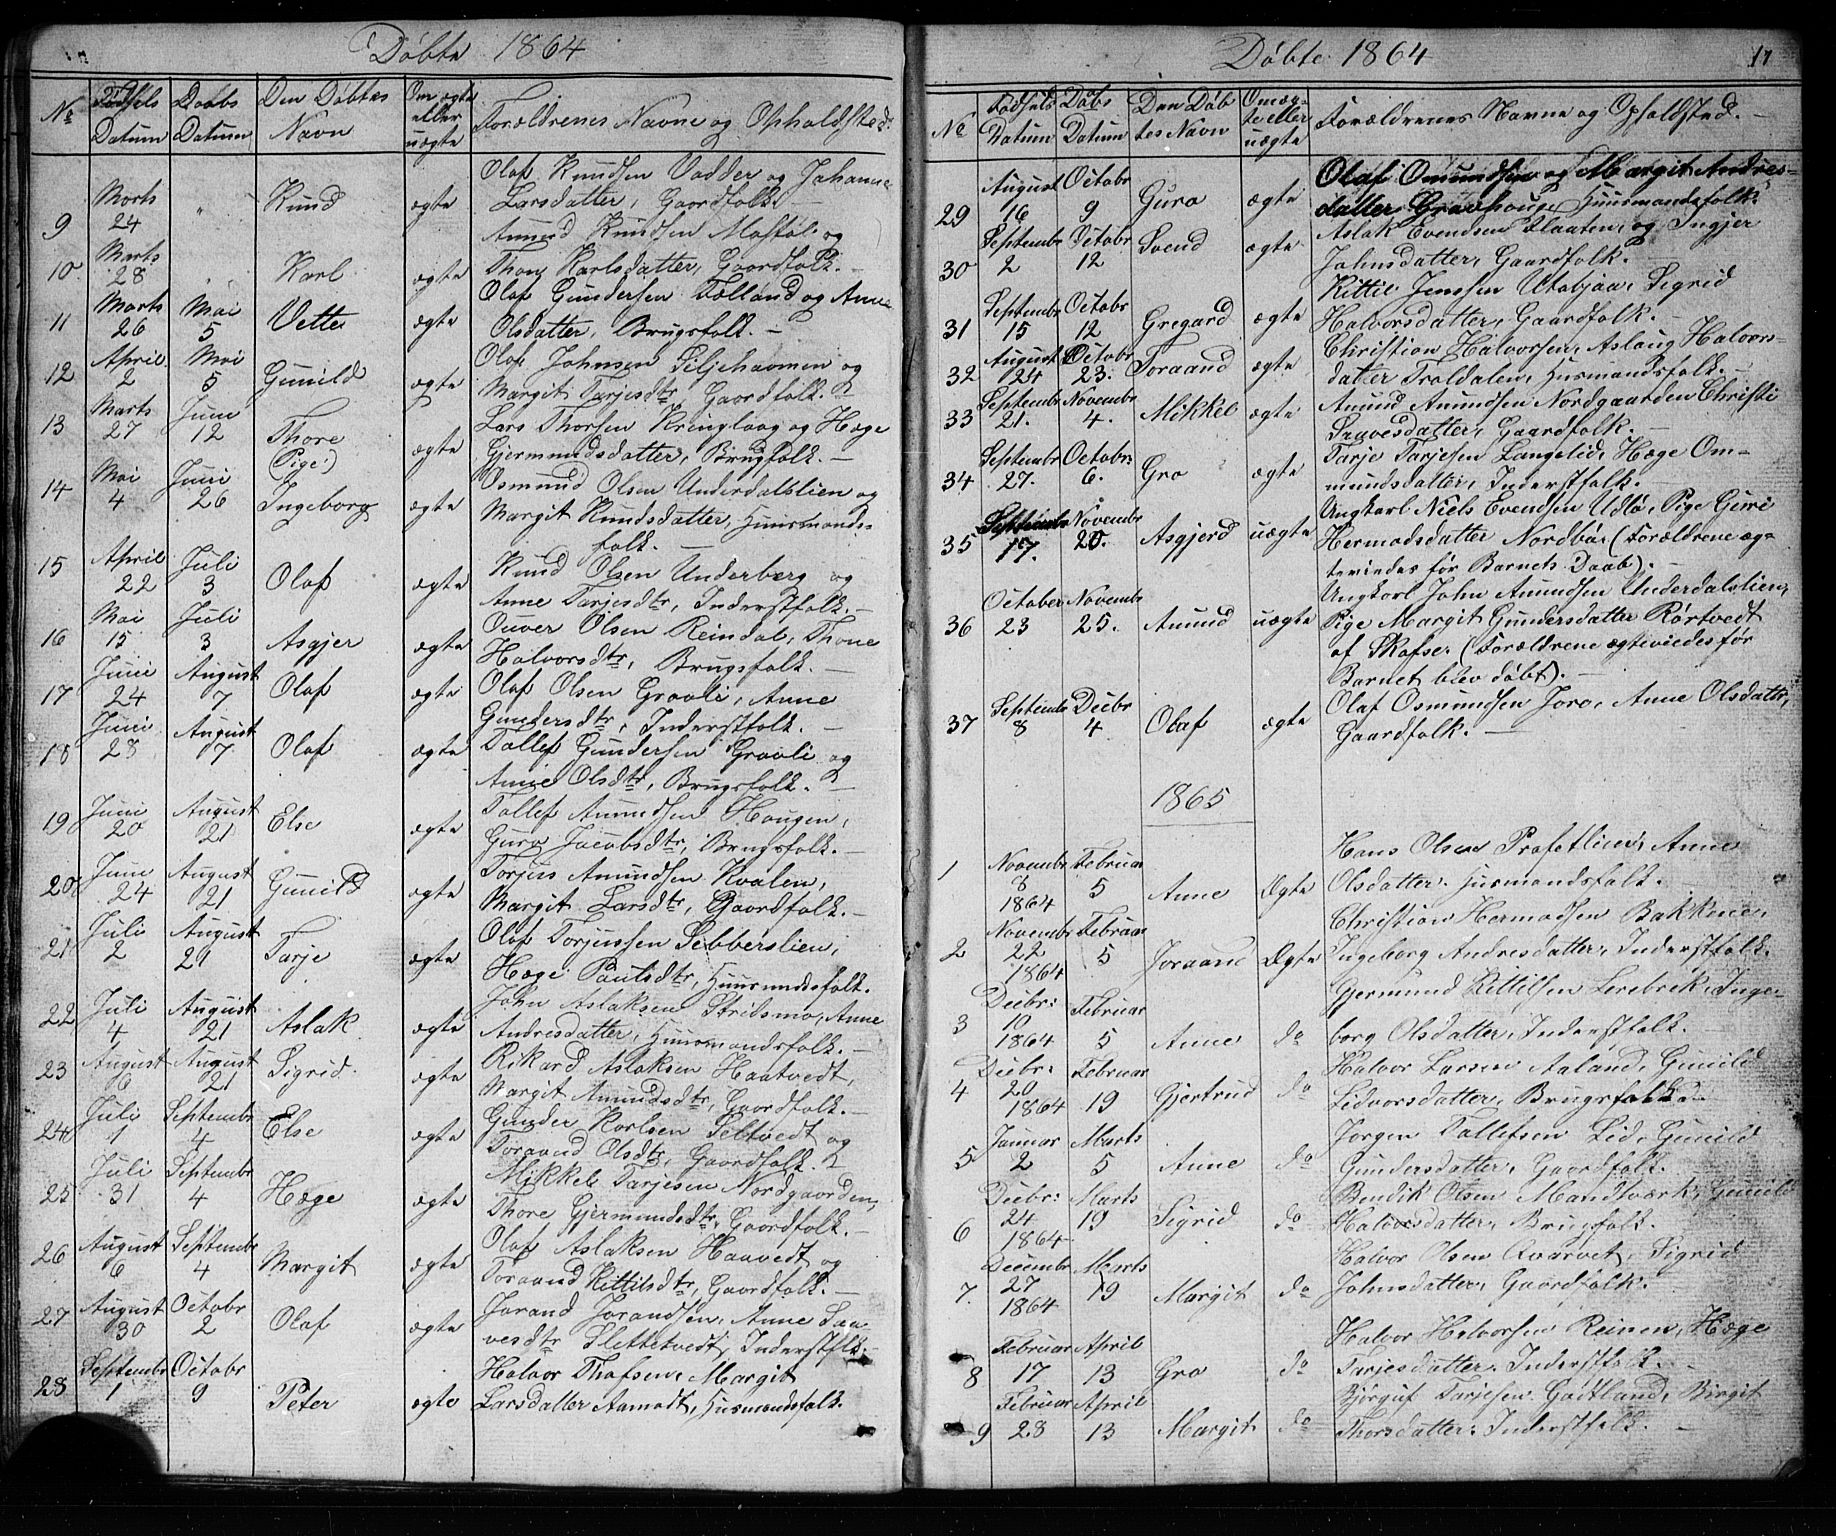 Døbte 1864
№ Fødsels Datum Daabs Datum Den Døbtes Navn Om ægte eller uægte Forældrenes Navne og Opholdsted.
9 Marts 24 " Knud ægte Olaf Knudsen Vadder og Johanne
Larsdatter, Gaardfolk. —
10 Marts 28 " Karl ægte Amund Knudsen Mostøl og
Thone Karlsdatter, Gaardfolk. —
11 Marts 26 Mai 5 Vetle ægte Olaf Gundersen Tælland og Anne
Olsdatter, Brugsfolk. —
12 April 2 Mai 5 Gunild ægte Olaf Johnsen Seljehavmen og
Margit Tarjesdtr, Gaardfolk.
13 Marts 27 Juni 12 Thore (Pige!) ægte Lars Thorsen Kringlaag og Hæge
Gjermundsdatter, Brugfolk. —
14 Mai 4 Juni 26 Ingeborg ægte Osmund Olsen Underdalslien og
Margit Knudsdatter, Huusmands-
folk. —
15 April 22 Juli 3 Olaf ægte Knud Olsen Underberg og
Anne Tarjesdtr, Inderstfolk. —
16 Mai 15 Juli 3 Asgjer ægte Ouver Olsen Reindal, Thone
Halvorsdtr, Brugsfolk. —
17 Juni 24 August 7 Olaf ægte Olaf Olsen Graavli, Anne
Gundersdtr, Inderstfolk. —
18 Juni 23 August 7 Olaf ægte Tallef Gundersen Graavli og
Anne Olsdtr, Brugsfolk. —
19 Juni 20 August 21 Else ægte Tallef Amundsen Haugen,
Guro Jacobsdtr, Brugsfolk. —
20 Juni 24 August 21 Gunild ægte Torjus Amundsen Kvalen,
Margit Larsdtr, Gaardfolk. —
21 Juli 2 August 21 Tarje ægte Olaf Torjussen Sebberslien,
Hæge Paulsdtr, Huusmandsfolk.
22 Juli 4 August 21 Aslak ægte John Aslaksen Stridsmo, Anne
Andresdatter, Huusmandsfolk. —
23 August 6 August 21 Sigrid ægte Rikard Aslaksen Haatvedt,
Margit Amundsdtr, Gaardfolk. —
24 Juli 1 Septembr 4 Else ægte Gunder Karlsen Seltvedt og
Toraand Olsdtr, Gaardfolk.
25 Juli 31 Septembr 4 Hæge ægte Mikkel Tarjesen Nordgaarden,
Thore Gjermundsdtr, Gaardfolk. —
26 August 6 Septembr 4 Margit ægte Olaf Aslaksen Haavedt og
Toraand Kittilsdtr, Gaardfolk. —
27 August 30 Octobr 2 Olaf ægte Jorand Jorandsen, Anne Saa-
vesdtr Slettetvedt, Inderstflk. —
28 Septembr 1 Octobr 9 Peter ægte Halvor Thofsen, Margit
Larsdatter Aamodt, Husmandsfolk.
Døbte 1864 17
№ Fødsels Datum Døbs Datum Den Døbtes Navn Om ægte eller uægte Forældrenes Navne og Opholdsted. —
29 August 16 Octobr 9 Guro ægte Olaf Omundsen og Margit Andres-
datter Graahoug Huusmandsfolk.
30 Septembr 2 Octobr 12 Svend ægte Aslak Evendsen Flaaten, og Ingjer
Johnsdatter, Gaardfolk.
31 Septembr 15 Octobr 12 Gregard ægte Kittil Jenssen Utabjaa, Sigrid
Halvorsdatter, Gaardfolk. —
32 August 24 Octobr 23. Toraand ægte Christian Halvorsen, Aslaug Halvors-
datter Troldalen, Husmandsfolk. —
33 Septembr 21. Novembr 4. Mikkel ægte Amund Amundsen Nordgaarden Christi
Saavesdatter, Gaardfolk. —
34 Septembr 27. Octobr: 6. Gro ægte Tarje Tarjesen Langelid, Hæge Om-
mundsdatter, Inderstfolk.
35 Septembr 17. Novembr 20. Asgjerd uægte Ungkarl Niels Evendsen Udlø, Pige Gurri
Hermodsdatter Nordbø. (Forældrene æg-
tevindes før Barnets Daab). —
36 October 23 Novembr 25. Amund uægte Ungkarl John Amundsen Underdalslien,
Pige Margit Gundersdatter Rørtvedt
af Skafse. (Forældrene ægteviedes før
Barnet blev døbt). —
37 Septembr 8 Decbr 4 Olaf ægte Olaf Osmundsen Joro, Anne Olsdattr,
Gaardfolk. —
1865
1 Novembr 8 1864 Februar 5 Anne Ægte Hans Olsen Profetlien, Anne
Olsdatter. Husmandsfolk.
2 Novembr 22 1864 Februar 5 Joraand Ægte Christian Hermodsen Bakkene,
Ingeborg Andresdatter, Inderstfolk.
3 Decbr: 10 1864 Februar 5 Anne do Gjermund Kittilsen Lerebrek, Inge-
borg Olsdatter, Inderstfolk.
4 Decbr: 20 1864 Februar 19 Gjertrud do Halvor Larsen Aaland, Gunild
Lidvorsdatter, Brugsfolk.
5 Januar 2 Marts 5 Anne do Jørgen Tallefsen Lid, Gunild
Gundersdatter, Gaardfolk.
6 Decbr: 24 1864 Marts 19 Sigrid do Bendik Olsen Mandtværk, Gunild
Halvorsdatter, Brugsfolk.
7. Decembr 27 1864 Marts 19 Margit do Halvor Olsen Qvarvet, Sigrid
Johnsdatter, Gaardfolk.
8 Februar 17 April 13 Gro do Halvor Halvorsen Reinen, Hæge
Tarjesdatter. Inderstfolk.
9 Februar 28 April 13 Margit do Bjørguf Tarjesen Gadtland, Birgit
Thorsdatter. Inderstfolk. —